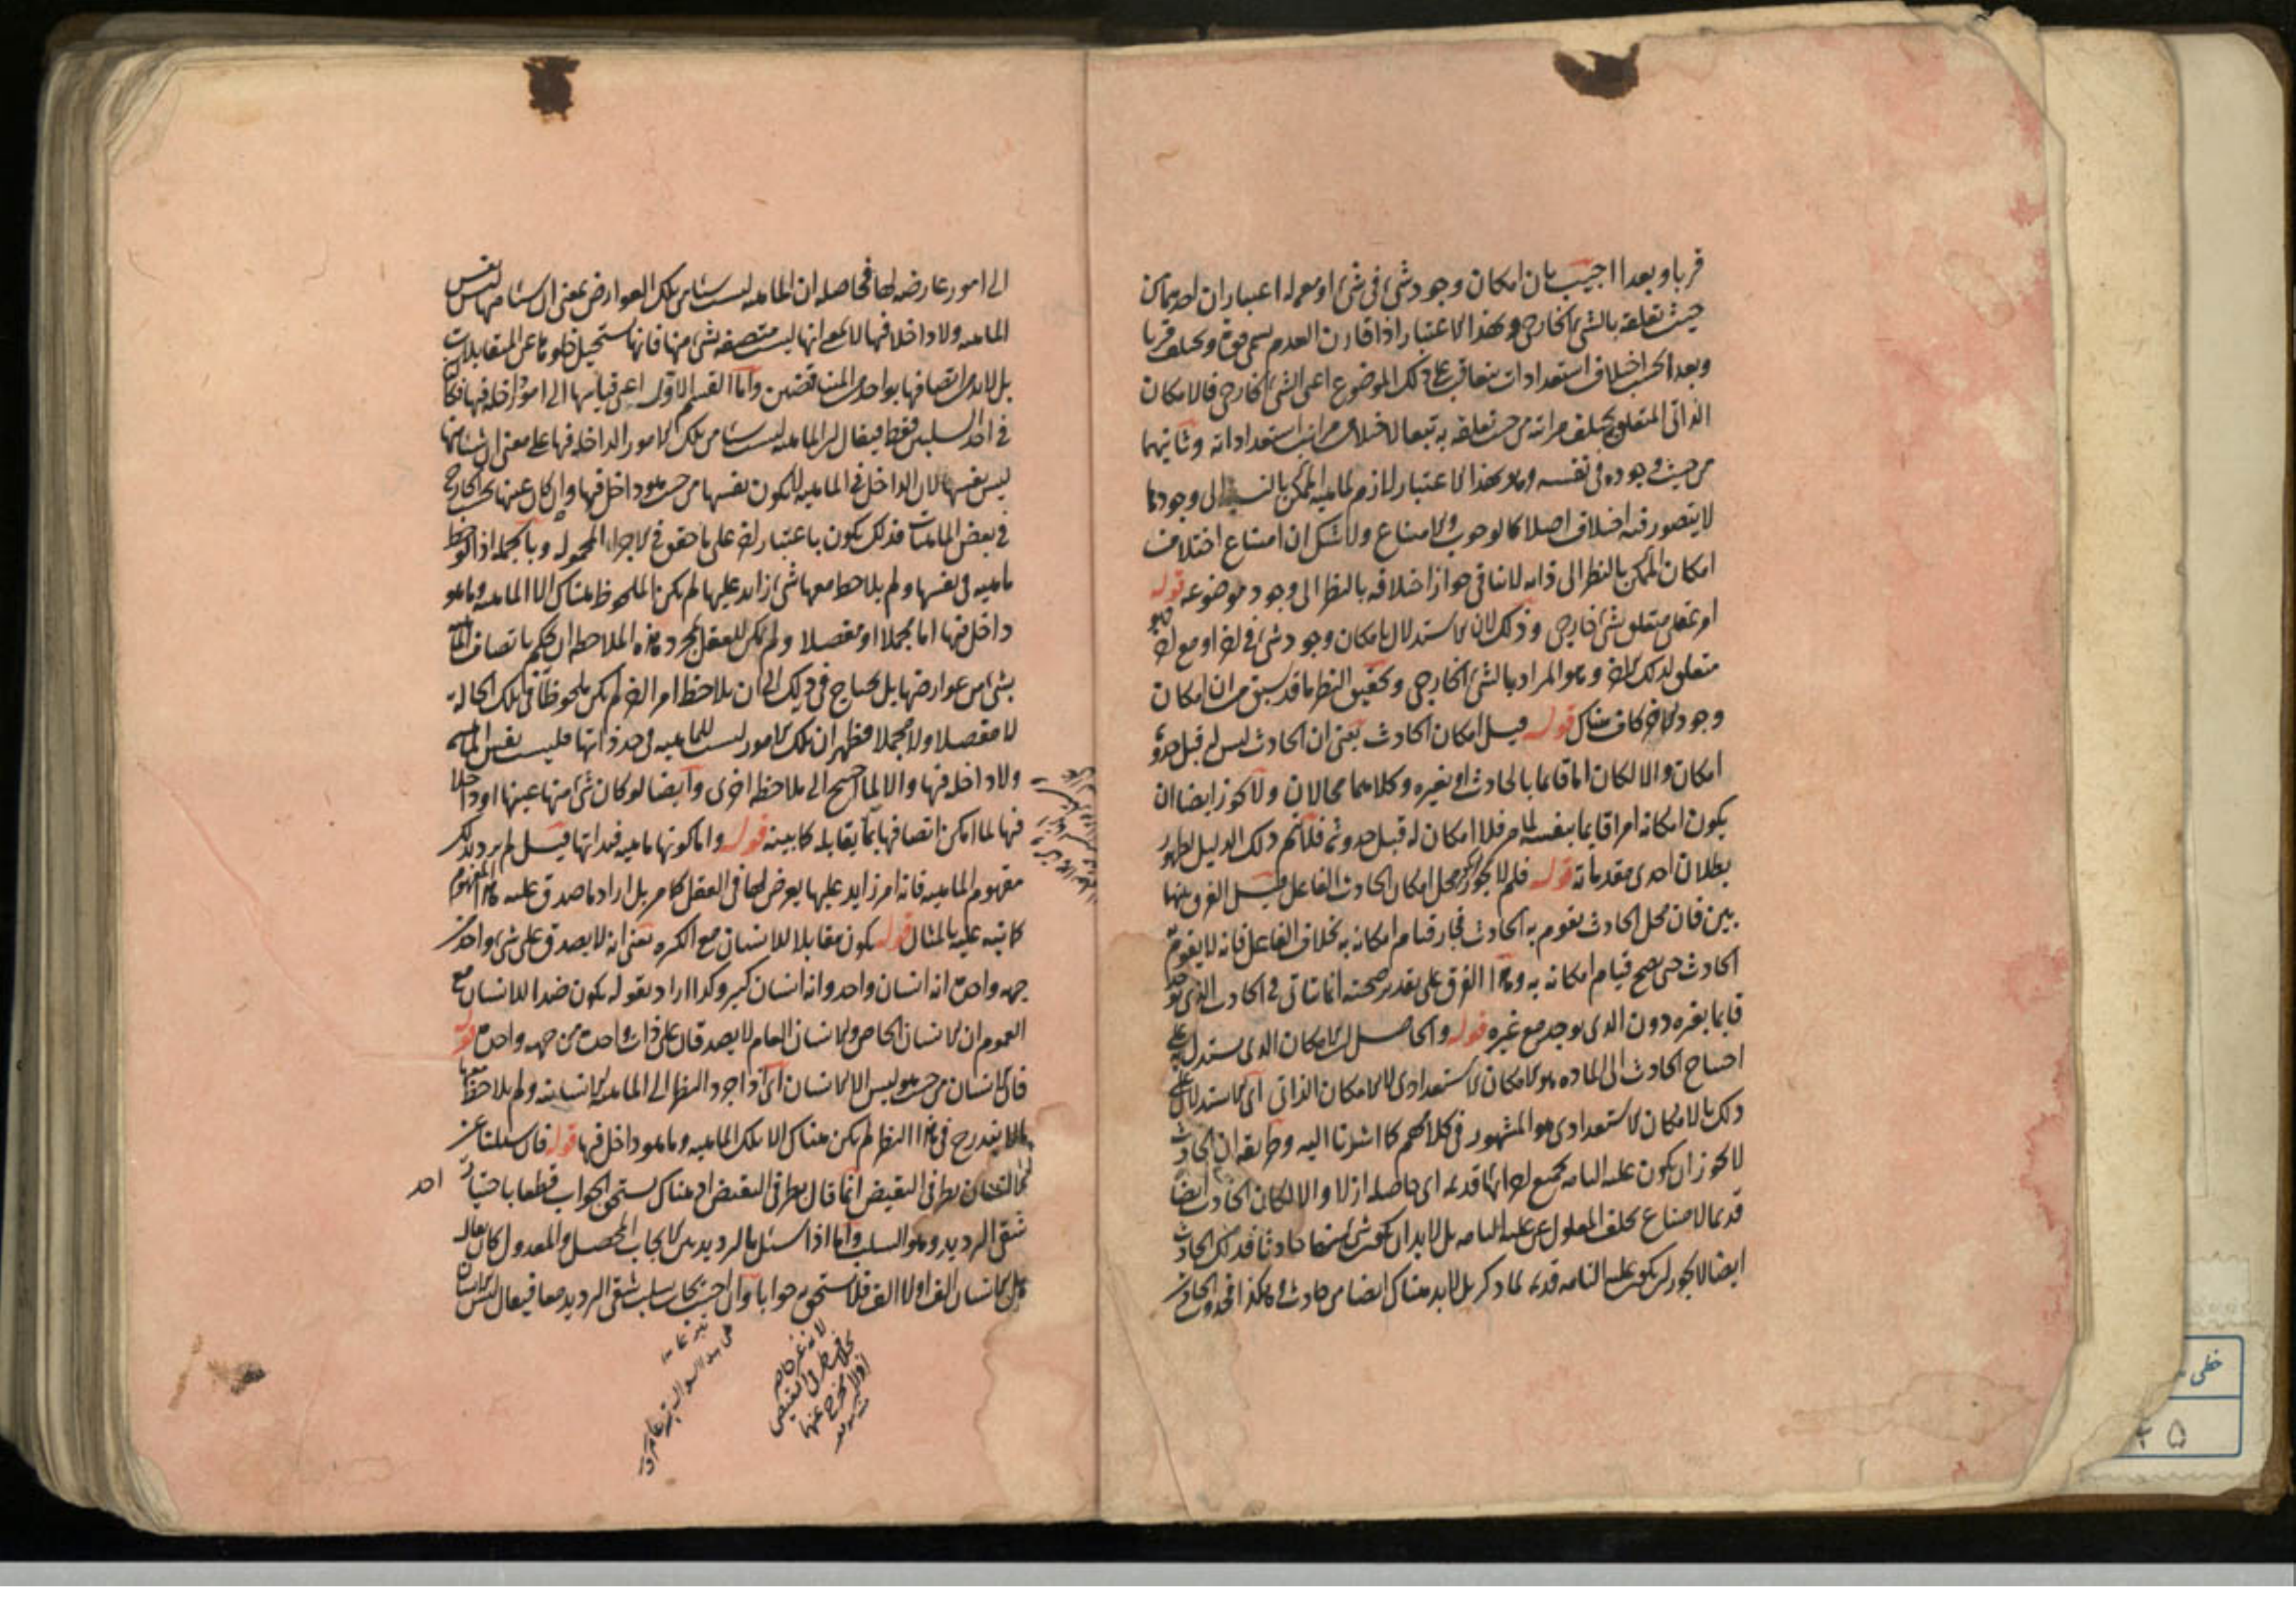 قربا و بعدا اجيب بان امكان وجود شئ فى شئ او معه له اعتباران احدهما من
حيث تعلقه بالشئ الخارجى و بهذا الاعتبار اذا قارن العدم سمى قوة و يختلف قربا
و بعدا بحسب اختلاف استعدادات متعاقبة على ذلك الموضوع اعنى الشئ الخارجى فالامكان
الذاتى المتعلق يختلف مراتبه من حيث تعلقه به تبعا لاختلاف مراتب استعداداته و ثانيهما
من حيث وجوده فى نفسه و هو بهذا الاعتبار لازم لماهية الممكن بالنسبة الى وجودها
لا يتصور فيه اختلاف اصلا كالوجوب و الامتناع و لا شك ان امتناع اختلاف
امكان الممكن بالنظر الى ذاته لا ينافى جواز اختلافه بالنظر الى وجود موضوعه قوله
امر عقلى متعلق بشئ خارجى و ذلك لان الاستدلال بامكان وجود شئ فى اخر او مع اخر
متعلق بذلك الاخر و هو المراد بالشئ الخارجى و تحقيق النظر ما قد سبق من ان امكان
وجود الاخر كاف هناك قوله قيل امكان الحادث يعنى ان الحادث ليس له قبل حدوثه
امكان و الا لكان اما قائما بالحادث او بغيره و كلاهما محالان و لا يجوز ايضا ان
يكون امكانه امرا قائما بنفسه لما مر فلا امكان له قبل حدوثه فلا يتم ذلك الدليل لظهور
بطلان احدى مقدماته قوله فلم لا يجوز ان يكون محل امكان الحادث الفاعل قيل الفرق بينهما
بين فان محل الحادث يقوم به الحادث فجاز قيام امكانه به بخلاف الفاعل فانه لا يقوم به
الحادث حتى يصح قيام امكانه به و هذا الفرق على تقدير صحته انما يتاتى فى الحادث الذى يوجد
قائما بغيره دون الذى يوجد مع غيره قوله و الحاصل ان الامكان الذى يستدل به على
احتياج الحادث الى المادة هو الامكان الاستعدادى لا الامكان الذاتى اى الاستدلال على
ذلك بالامكان الاستعدادى هو المشهور فى كلامهم كما اشرنا اليه و طريقه ان الحادث
لا يجوز ان يكون علته التامة بجميع اجزائها قديمة اى حاصلة ازلا و الا لكان الحادث ايضا
قديما لامتناع تخلف المعلول عن علته التامة بل لا بد ان يكون شئ منها حادثا فذلك الحادث
ايضا لا يجوز ان يكون علته التامة قديمة لما ذكر بل لا بد هناك ايضا من حادث و هكذا
الى امور عارضة لها فحاصله ان الماهية ليست شيئا من تلك العوارض بمعنى ان شيئا منها ليس نفس
الماهية و لا داخلا فيها لا بمعنى انها ليست متصفة بشئ منها فانها يستحيل خلوها عن المتقابلات
بل لا بد من اتصافها بواحد من المتناقضين و اما القسم الاول اعنى قياسها الى امور داخلة فيها
فى احد السلبين فقط فيقال ان الماهية ليست شيئا من تلك الامور الداخلة فيها على معنى ان شيئا منها
ليس نفسها لان الداخل فى الماهية لا يكون نفسها من حيث هو داخل فيها و ان كان عينها بحسب الخارج
فى بعض الماهيات فذلك يكون باعتبار اخر على ما حقق فى الاجزاء المحمولة و بالجملة اذا لوحظ
ماهية فى نفسها و لم يلاحظ معها شئ زائد عليها لم يكن الملحوظ هناك الا الماهية و ما هو
داخل فيها اما مجملا او مفصلا و لم يكن للعقل بمجرد هذه الملاحظة ان يحكم باتصاف الماهية
بشئ من عوارضها بل يحتاج فى ذلك الى ان يلاحظ امرا اخر لم يكن ملحوظا فى تلك الحالة
لا مفصلا و لا مجملا فظهر ان تلك الامور ليست للماهية فى حد ذاتها فليست نفس الماهية
و لا داخلة فيها و الا لما احتيج الى ملاحظة اخرى و ايضا لو كان شئ منها عينها او داخلا
فيها لما امكن اتصافها بما يقابله كما بينه قوله و اما كونها ماهية فبذاتها قيل لم يرد بذلك
مفهوم الماهية فانه امر زائد عليها يعرض لها فى العقل كما مر بل اراد ما صدق عليه هذا المفهوم
كما نبه عليه بالمثال قوله يكون مقابلا للانسان مع الكثرة يعنى انه لا يصدق على شئ واحد من
جهة واحدة انه انسان واحد و انه انسان كثير و كذا اراد بقوله يكون ضدا للانسان مع
العموم ان الانسان الخاص و الانسان العام لا يصدقان على ذات واحدة من جهة واحدة قوله
فان الانسان من حيث هو ليس الا الانسان اى اذا جرد النظر الى الماهية الانسانية و لم يلاحظ معها
ما لا يندرج فى هذا النظر لم يكن هناك الا تلك الماهية و ما هو داخل فيها قوله فان سئلنا عن
الانسان بطرفى النقيض انما قال بطرفى النقيض اذ هناك يستحق الجواب قطعا باختيار احد
شقى الترديد و هو السلب و اما اذا سئل بالترديد بين الايجاب المحصل و المعدول كان يقال
هل الانسان الف او لا الف فلا يستحق جوابا و ان اجيب اجيب بسلب شقى الترديد معا فيقال ليس الانسان
خطى